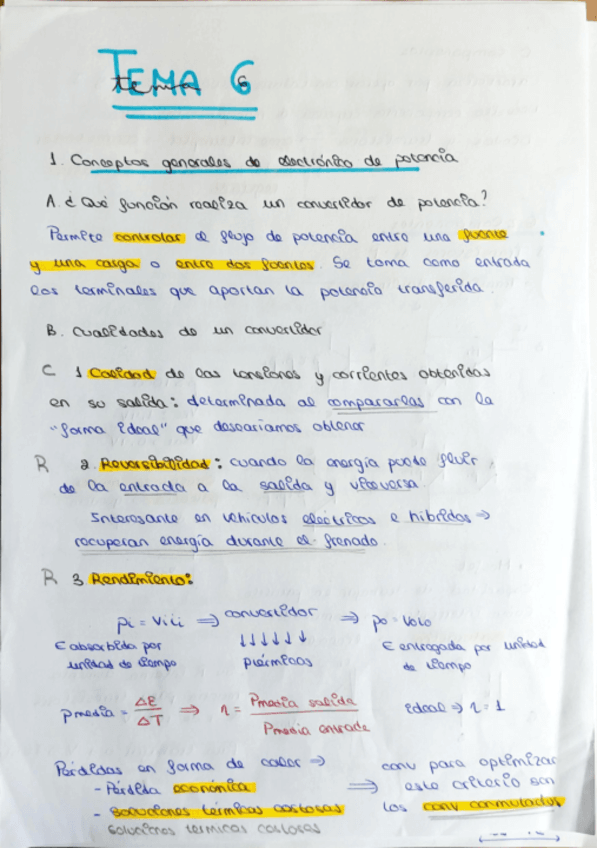 TEMA 6
tema 6
1. Conceptos generales de electrónica de potencia
A. ¿Qué función realiza un convertidor de potencia?
Permite controlar el flujo de potencia entre una fuente
y una carga o entre dos fuentes. Se toma como entrada
los terminales que aportan la potencia transferida.
B. Cualidades de un convertidor
C 1 Calidad de las tensiones y corrientes obtenidas
en su salida: determinada al compararlas con la
"forma ideal" que desearíamos obtener
R 2. Reversibilidad: cuando la energía puede fluir
de la entrada a la salida y viceversa.
Interesante en vehículos eléctricos e híbridos ⇒
recuperan energía durante el frenado.
R 3 Rendimiento:
pi = vi ii ⇒ convertidor ⇒ po = vo io
E absorbida por ↓↓↓↓↓↓ E entregada por unidad
unidad de tiempo ptérmicas de tiempo
pmedia = ΔE/ΔT ⇒ η = Pmedia salida / Pmedia entrada ideal ⇒ η = 1
Pérdidas en forma de calor ⇒ conv para optimizar
- Pérdida económica ⇒ este criterio son
- soluciones térmicas costosas los conv conmutados
soluciones termicas costosas